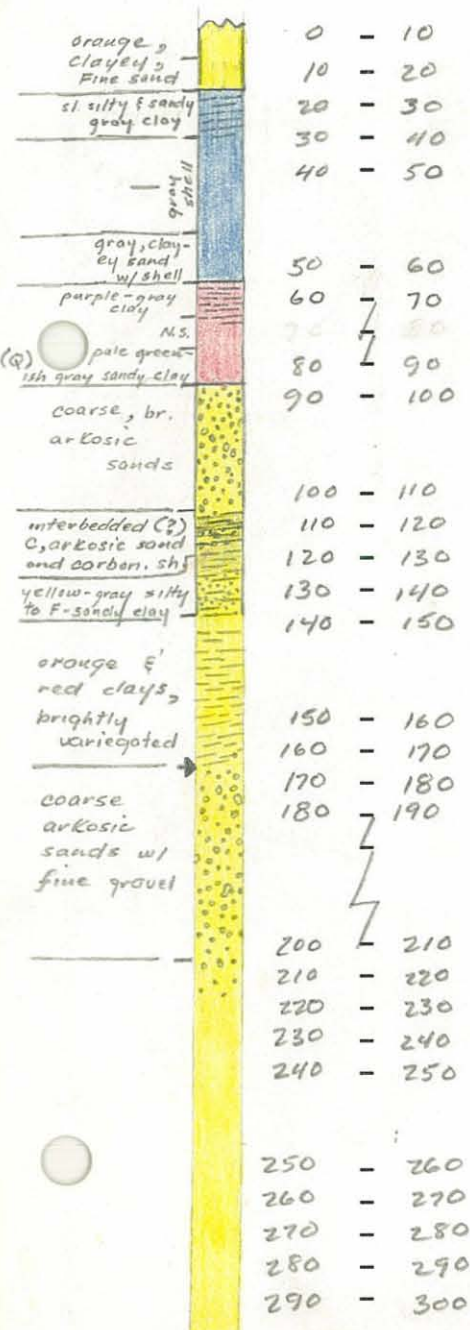 orange,
clayey,
Fine sand
sl. silty & sandy
gray clay
hard
shell
gray, clay-
ey sand
w/ shell
purple-gray
clay
N.S.
(Q) pale green-
ish gray sandy clay
coarse, br.
arkosic
sands
interbedded (?)
C, arkosic sand
and carbon. sh.
yellow-gray silty
to F-sandy clay
orange &
red clays,
brightly
variegated
coarse
arkosic
sands w/
fine gravel
0 - 10
10 - 20
20 - 30
30 - 40
40 - 50
50 - 60
60 - 70
70 - 80
80 - 90
90 - 100
100 - 110
110 - 120
120 - 130
130 - 140
140 - 150
150 - 160
160 - 170
170 - 180
180 - 190
200 - 210
210 - 220
220 - 230
230 - 240
240 - 250
250 - 260
260 - 270
270 - 280
280 - 290
290 - 300